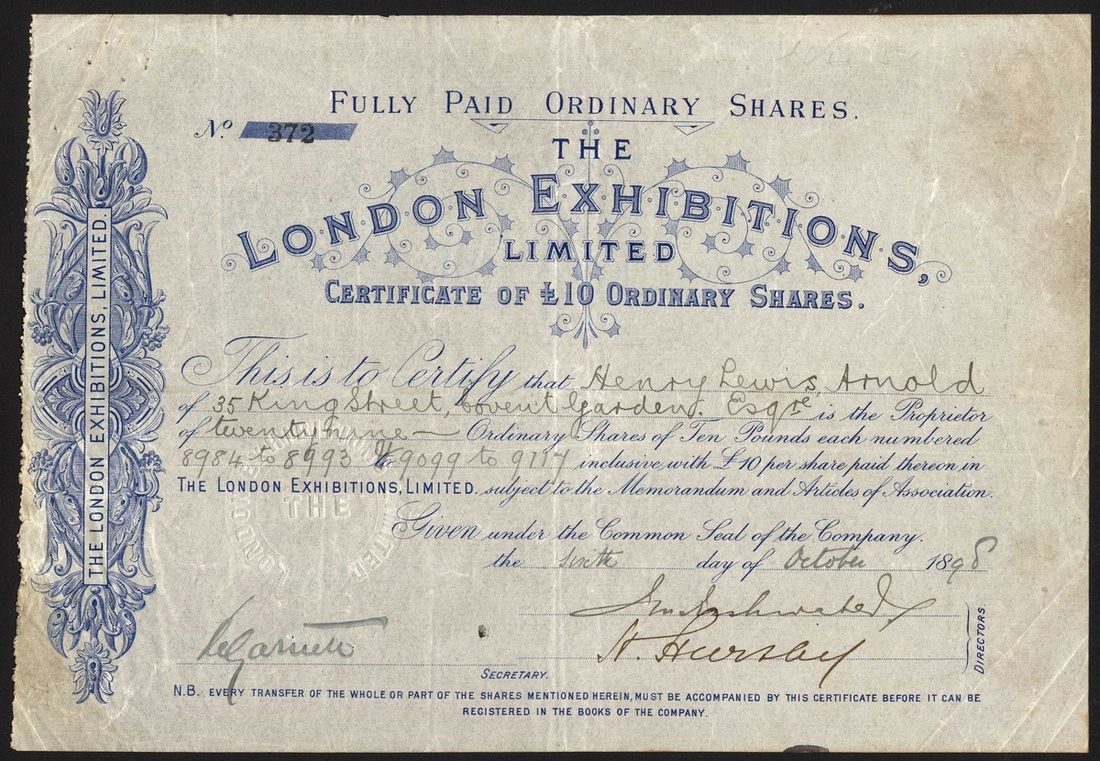 FULLY PAID ORDINARY SHARES.
No. 372
THE
LONDON EXHIBITIONS,
LIMITED
CERTIFICATE OF £10 ORDINARY SHARES.
THE LONDON EXHIBITIONS, LIMITED.
This is to Certify that Henry Lewis Arnold
of 35 King Street, Covent Garden. Esqre is the Proprietor
of twenty nine Ordinary Shares of Ten Pounds each numbered
8984 to 8993 & 9099 to 9117 inclusive with £10 per share paid thereon in
THE LONDON EXHIBITIONS, LIMITED. subject to the Memorandum and Articles of Association.
Given under the Common Seal of the Company.
the sixth day of October 1898
DIRECTORS.
SECRETARY.
N.B. EVERY TRANSFER OF THE WHOLE OR PART OF THE SHARES MENTIONED HEREIN, MUST BE ACCOMPANIED BY THIS CERTIFICATE BEFORE IT CAN BE
REGISTERED IN THE BOOKS OF THE COMPANY.